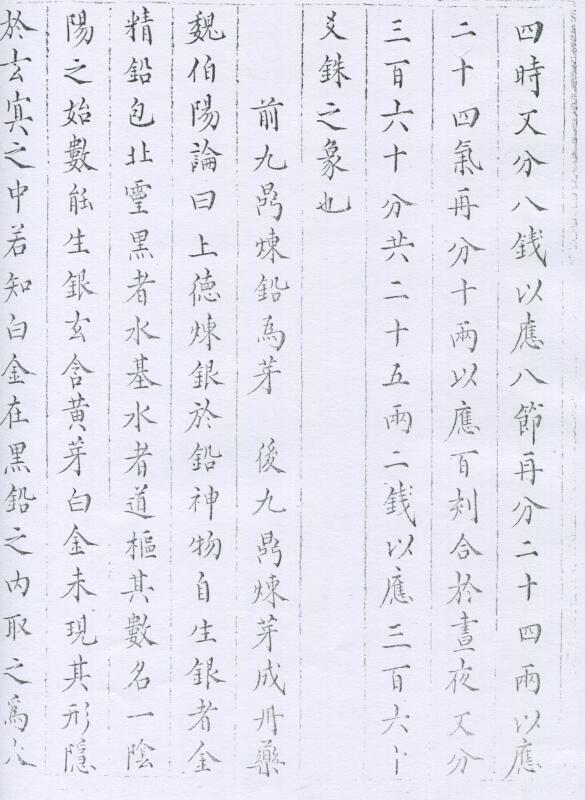 四時又分八錢以應八節再分二十四兩以應
二十四氣再分十兩以應百刻合於晝夜又分
三百六十分共二十五兩二錢以應三百六十
爻銖之象也
前九鼎煉鉛為芽　後九鼎煉芽成丹藥
魏伯陽論曰上德煉銀於鉛神物自生銀者金
精鉛包北靈黑者水基水者道樞其數名一陰
陽之始數能生銀玄含黃芽白金未現其形隱
於玄冥之中若知白金在黑鉛之內取之爲